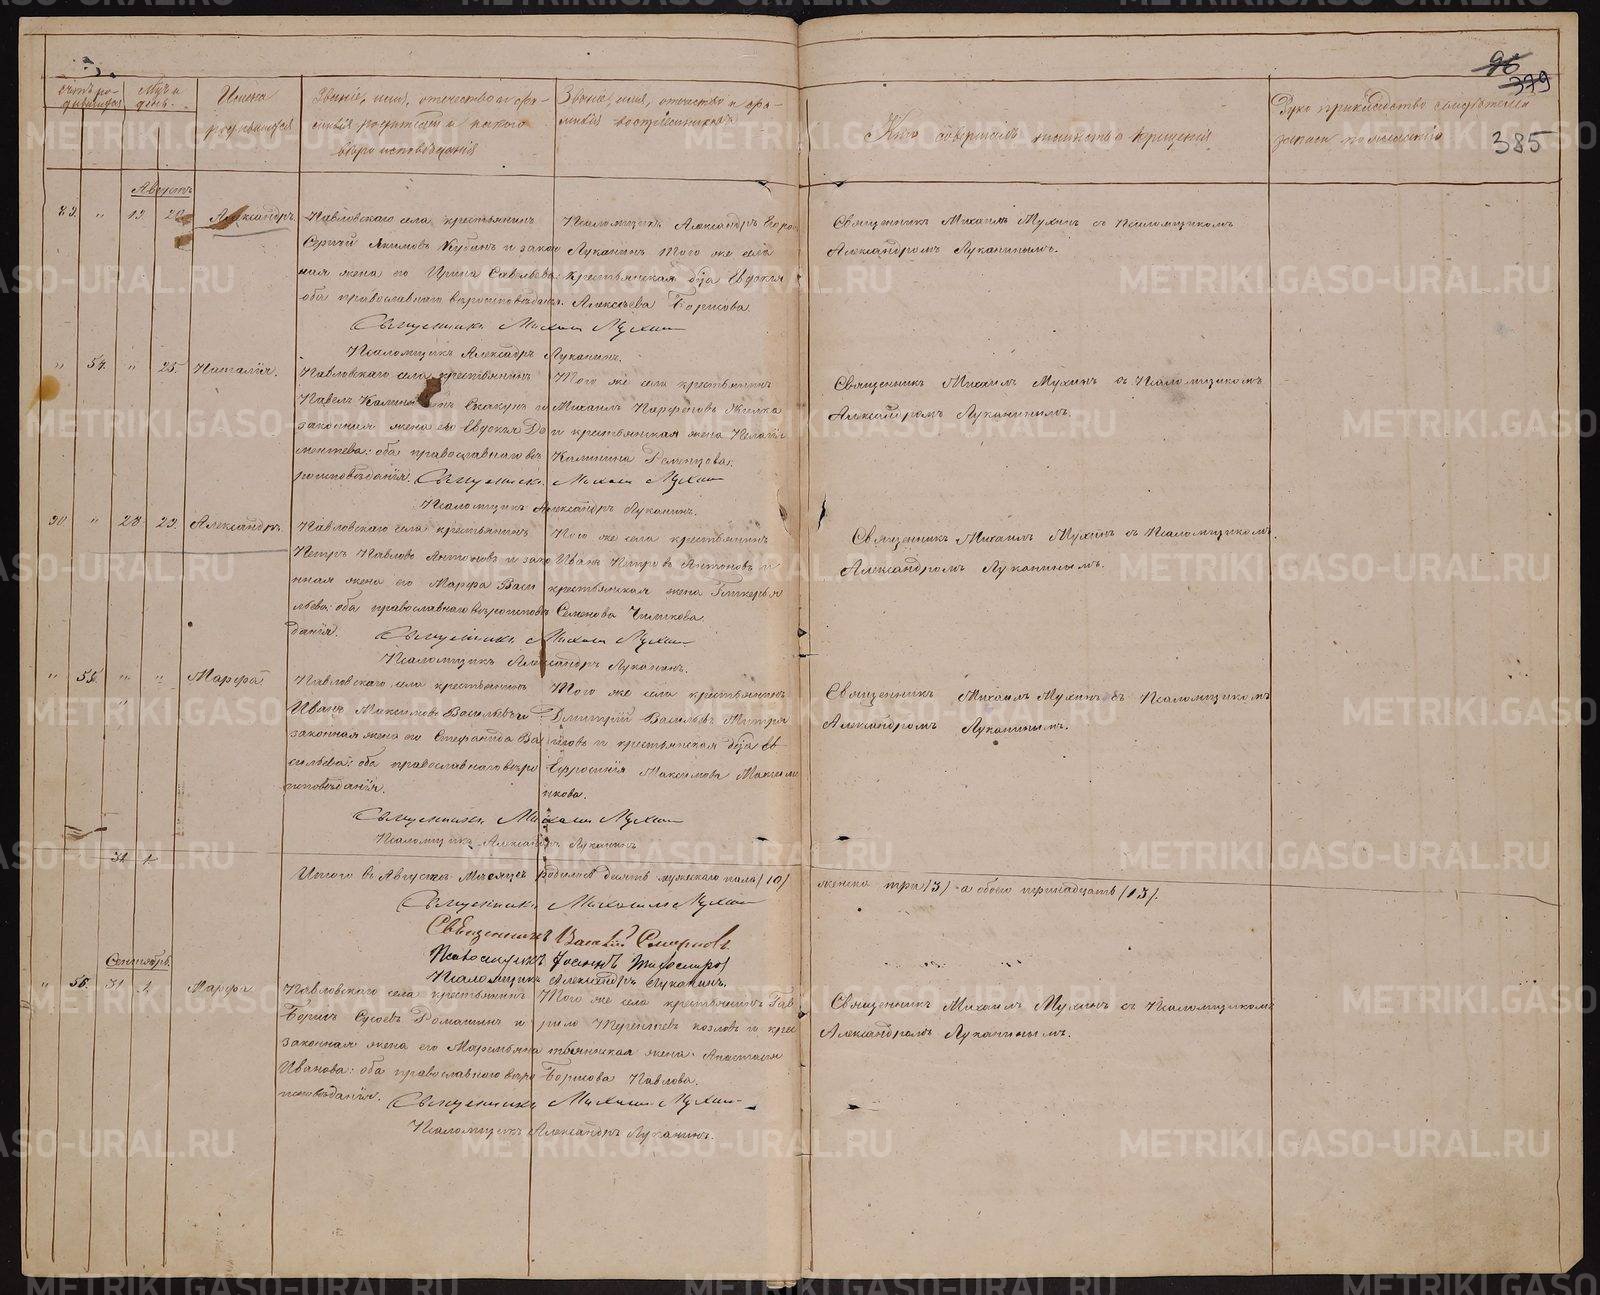 96
379
385
счетъ ро-
дившихся
Мѣс. и
день.
Имена
родившихся
Званіе, имя, отечество и фа-
милія родителей и какого
вѣроисповѣданія
Званіе, имя, отечество и фа-
милія воспріемниковъ
Кто совершалъ таинство крещенія
Руко прикладство свидѣтелей
записи по желанію
Августъ
19 20 Александръ
Павловскаго села крестьянинъ
Сергій Якимовъ и закон
ная жена его Ирина Савельева:
оба православнаго вѣроисповѣданія.
Псаломщикъ Александръ Егоров
Луканинъ Того же села
крестьянская дѣва Евдокія
Алексѣева Борисова
Священникъ Михаилъ Мухинъ съ Псаломщикомъ
Александромъ Луканинымъ.
Священникъ Михаилъ Мухин
Псаломщикъ Александръ Луканинъ.
" 54. " 25. Наталія.
Павловскаго села крестьянинъ
Павелъ Скакун и
законная жена его Евдокія До
ментева: оба православнаго вѣ
роисповѣданія.
Того же села крестьянинъ
Михаилъ Парфеновъ Жилка
и крестьянская жена Пелагія
Калинина
Священникъ Михаилъ Мухинъ съ Псаломщикомъ
Александромъ Луканинымъ.
Священникъ Михаил Мухин
Псаломщикъ Александръ Луканинъ.
30. " 28 29. Александръ.
Павловскаго села крестьянинъ
Петръ Павловъ Антоновъ и зако
нная жена его Марфа Васи
льева: оба православнаго вѣроисповѣ
данія.
Того же села крестьянинъ
Иванъ Петровъ Антоновъ и
крестьянская жена Гликерья
Семенова
Священникъ Михаилъ Мухинъ съ Псаломщикомъ
Александромъ Луканинымъ.
Священникъ Михаил Мухин
Псаломщикъ Александръ Луканинъ.
" 55. " " Марфа
Павловскаго села крестьянинъ
Иванъ Максимовъ Васильевъ и
законная жена его Стефанида Ва
сильева: оба православнаго вѣро
исповѣданія.
Того же села крестьянинъ
Дмитрій Васильевъ
и крестьянская дѣва
Ефросинія Максимова
Священникъ Михаилъ Мухинъ съ Псаломщикомъ
Александромъ Луканинымъ.
Священникъ Михаил Мухин
Псаломщикъ Александръ Луканинъ
31 1
Итого въ Августѣ Мѣсяцѣ родилось десять мужескаго пола /10/
женска три /3/ а обоего тринадцать /13/.
Священникъ Михаилъ Мухин
Священникъ Василій Смирновъ
Псаломщикъ
Псаломщикъ Александръ Луканинъ.
Сентябрь.
" 56. 31. 1. Марфа
Павловскаго села крестьянинъ
Борисъ Сусоевъ Домашинъ и
законная жена его Маремьяна
Иванова: оба православнаго вѣро
исповѣданія.
Того же села крестьянинъ Гав
рило козловъ и крес
тьянская жена Анастасія
Борисова Павлова.
Священникъ Михаилъ Мухинъ съ Псаломщикомъ
Александромъ Луканинымъ.
Священникъ Михаил Мухин
Псаломщикъ Александръ Луканинъ.
METRIKI.GASO-URAL.RU